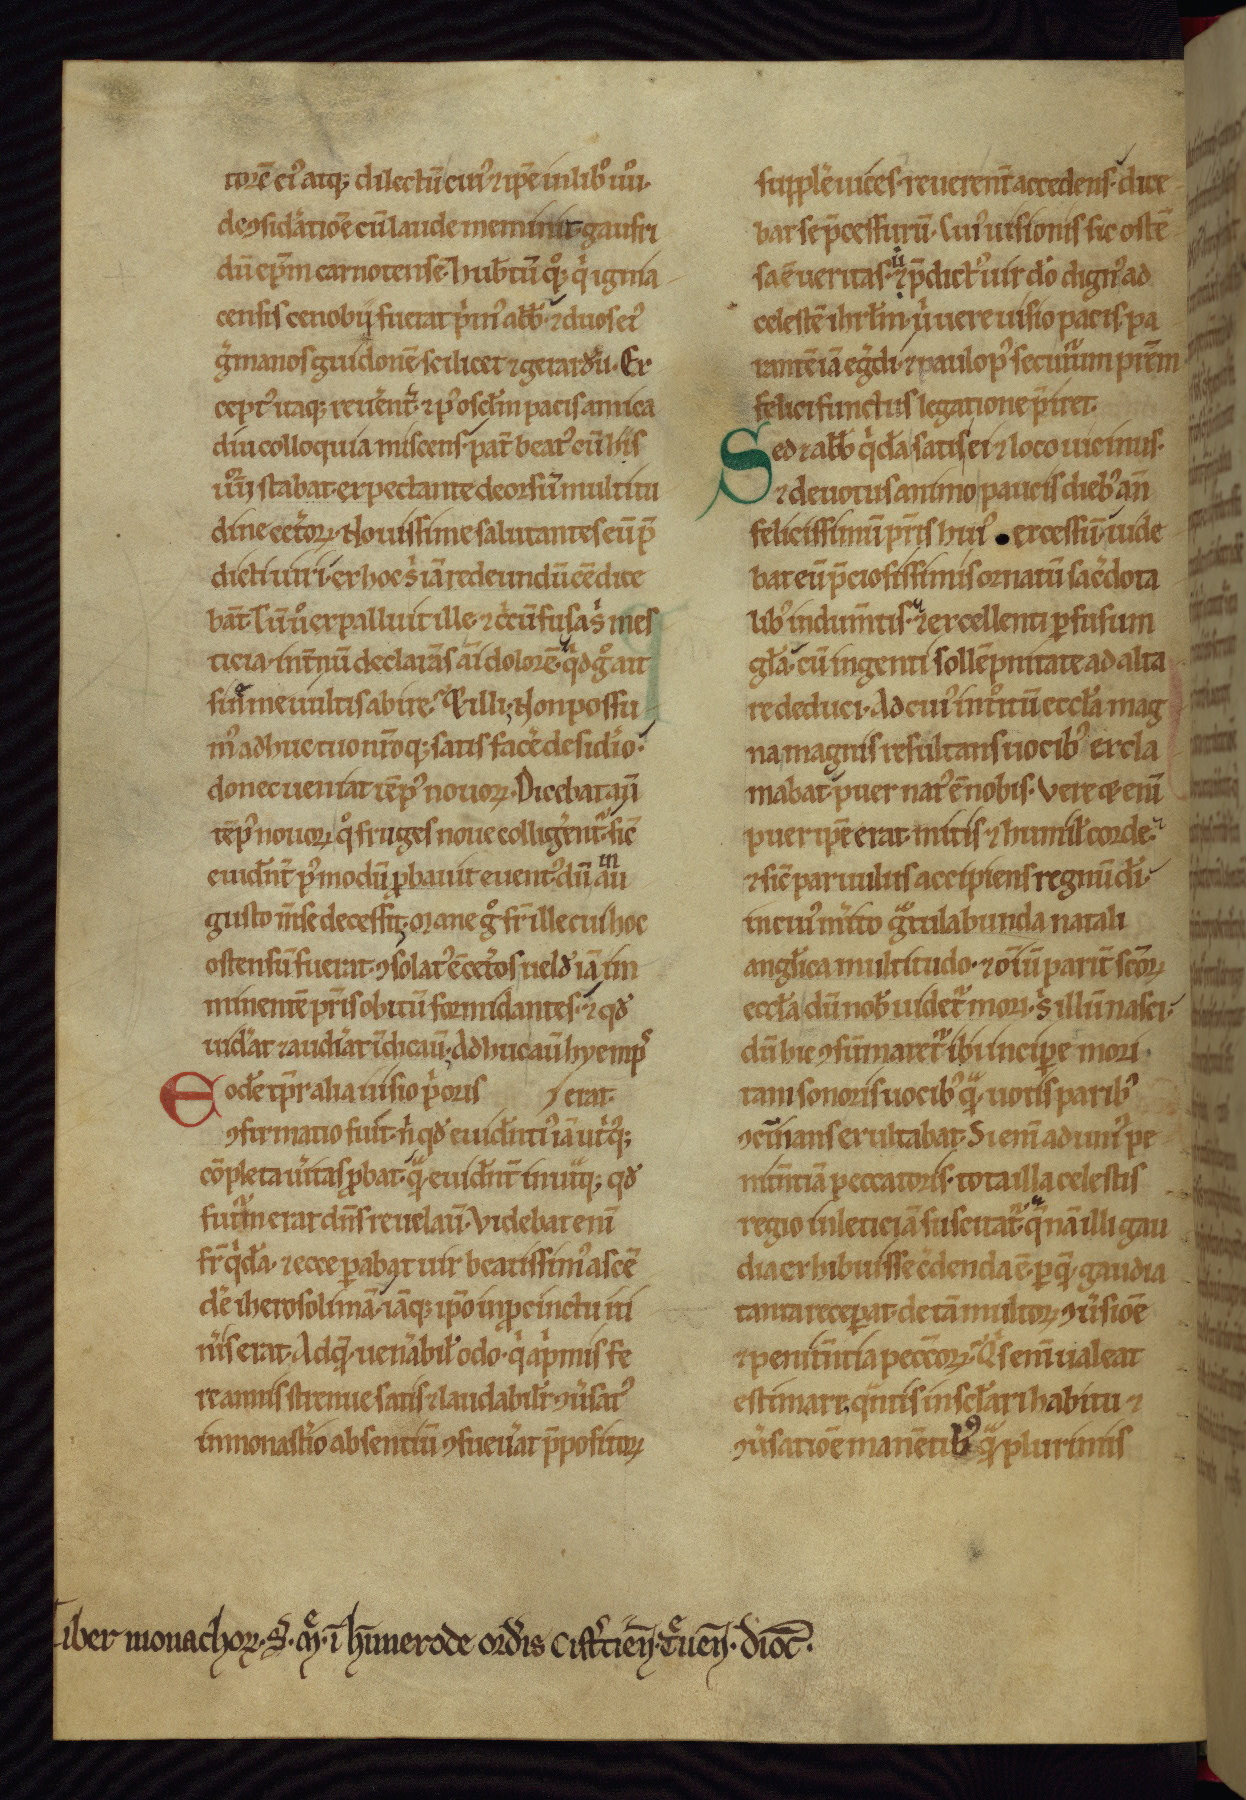 torē ei᾽ atq; dilectū cui᾽ ⁊ ip̄e in libo̊ iiii̊.
de ꝯsidatiōe cū laude meminit. gaufri
dū ep̄m carnotensē. hub̄tū qo̊; q̇ ignia
censis cenobij fuerat ṗm᾽ abb̄. ⁊ duos ei᾽
ġmanos guidonē scilicet ⁊ gerardū. Ex
cept᾽ itaq; reuēnt᾽ ⁊ p᾽ osclm̄ pacis amica
diu colloquia miscens. pat̄ beat᾽ cū his
iiiio̊r stabat. expectante deorsū multitu
dine cet̄oꝝ. Nouissime salutantes eū p̄
dicti uiri. ex hoc s̄ iā redeundū eē dice
bāt. Tū uo̊ expalluit ille. ⁊ c̄cūfusa s̄ mes
ticia. int̄nū declarās ai᾽ dolorē. q̇d go̊ ait
sine me uultis abire? Et illi. Non possu
m᾽ adhuc tuo nr̄oq; satisfac̄e desid̄io.
donec ueniat tēp᾽ nouoꝝ. Dicebat aū
tēp᾽ nouoꝝ qo̊ fruges noue colliger̄ent᾽. sic̄
euident᾽ p᾽modū ꝓbauit euent᾽. dū in au
gusto m̄se decessit. orane go̊ fr̄ ille cui hoc
ostensū fuerat. ꝯsolat᾽ ē cet̄os uelud iā im
minentē pr̄is obitū formidantes. ⁊ qd̄
uid̄at ⁊ audiat īdicauit. Adhuc aū hyemp᾽s
Eodē tp̄r alia uisio p̄oris erat.
ꝯfirmatio fuit. n̄ qd̄ euident᾽ iā ut᾽q;
cōpleta ueritas ꝓbat. qͣ euident̄ in ut̄q; qd̄
futūm erat dn̄s reuelauit. Videbat eni᾽
fr̄ q̇dā. ⁊ ecce parabat uir beatissim᾽ ascē
dē iherosolimā. iāq; ip̄o in ꝓcinctu iti
n̄is erat. Adq̄ uen̄abil̄ odo. q̇ a p̄mis fe
re annis strenue satis ⁊ laudabilit̄ ꝯuersat᾽
in monast̄io absentiū ꝯfueu̇at p̄positoꝝ
supplē uices. reuerent̄ accedens. dice
bat se p̄cessurū. Cui᾽ uisionis sic ostē
sa ē ueritas. ⁊ p̄dict᾽ uir do̊ dign᾽ ad
celestē ihrl̄m. u̇ uere uisio pacis. pa
rantē iā eg̊di. ⁊ paulo p᾽ secutum pr̄em
felici functus legatione p̄iret.
Sed ⁊ abb̄ q̇dā satis ei ⁊ loco uicinus.
⁊ deuotus animo paucis dieb᾽ an̄
felicissimū pr̄is hui᾽ excessū. uide
bat eū p̄ciosissimis ornatū sac̄dota
lib᾽ indumt̄is. ⁊ excellenti ꝑfusum
glā. cū ingenti sollēpnitate ad alta
re deduci. Ad cui᾽ int̄oitū eccl̄a mag
na magnis resultans uocib᾽ excla
mabat. puer nat᾽ ē nobis. Vere eni᾽
puer ip̄e erat. mitis ⁊ humil̄ corde.
⁊ sic̄ paruulus accipiens regnū dī.
in cui᾽ m̄ito gͣtulabunda natali
angl̄ica multitudo. ⁊ oīū parit̄ sc̄oꝝ
eccl̄a dū nob̄ uidet᾽ mori. s̄ illū nasci.
dū hic ꝯsūmaret᾽ ibi incipe mori
tam sonoris uocib᾽ qͣ uotis parib᾽
ꝯcinans exultabat. Si eni᾽ ad uni᾽ pe
nitn̄tiā peccatoris. tota illa celestis
regio in leticiā suscitat᾽. qͣ nā illi gau
dia exhibuisse c̄denda ē. ꝑ qͣ gaudia
tanta receperat. de tā multoꝝ ꝯuersiōe
⁊ penitn̄tia pecc̄oꝝ? Q᾽s eni᾽ ualeat
estimare. qͣntis in scl̄ari habitu ⁊
ꝯuersatiōe manētib᾽ qͣ plurimis
Liber monachoꝝ. S. Mͤ. ī hīmerode ordīs Cistciēn̄. Tͤuen̄. dioc̄.